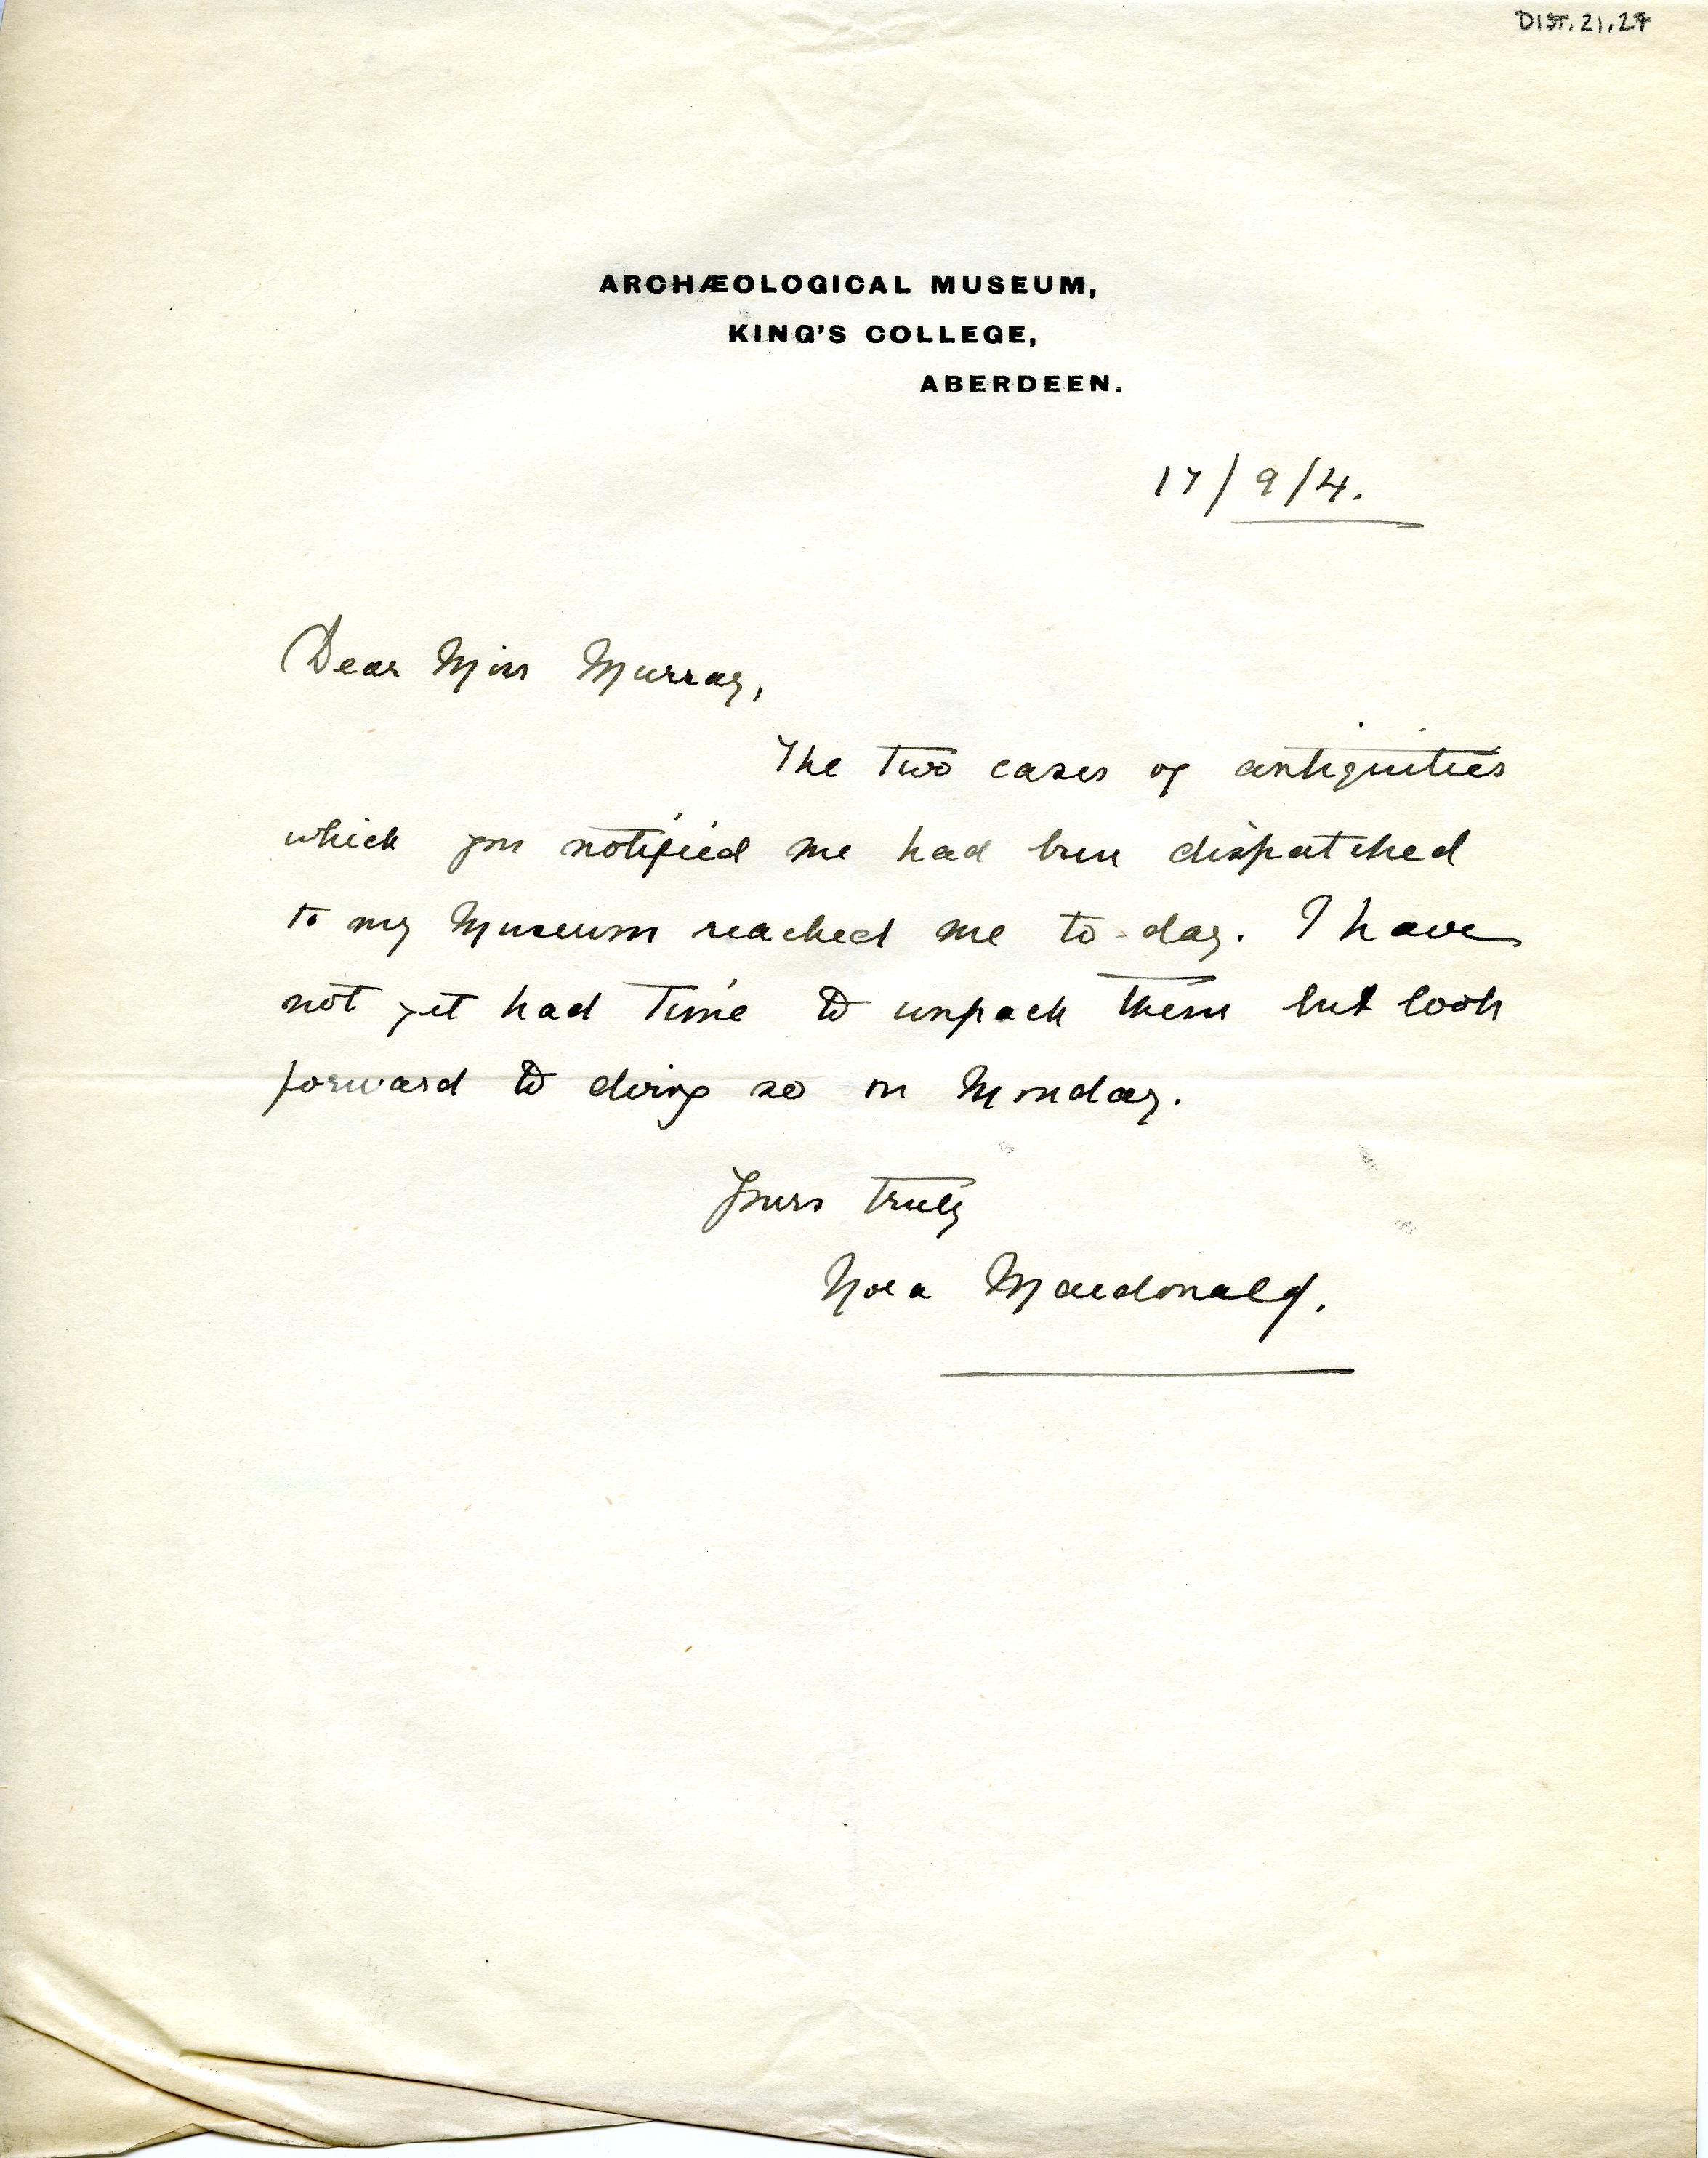 DIST.21.27
ARCHÆOLOGICAL MUSEUM,
KING'S COLLEGE,
ABERDEEN.
17/9/4.
Dear Miss Murray,
The two cases of antiquities
which you notified me had been dispatched
to my Museum reached me to-day. I have
not yet had time to unpack them but look
forward to doing so on Monday.
Yours truly
Nora Macdonald.